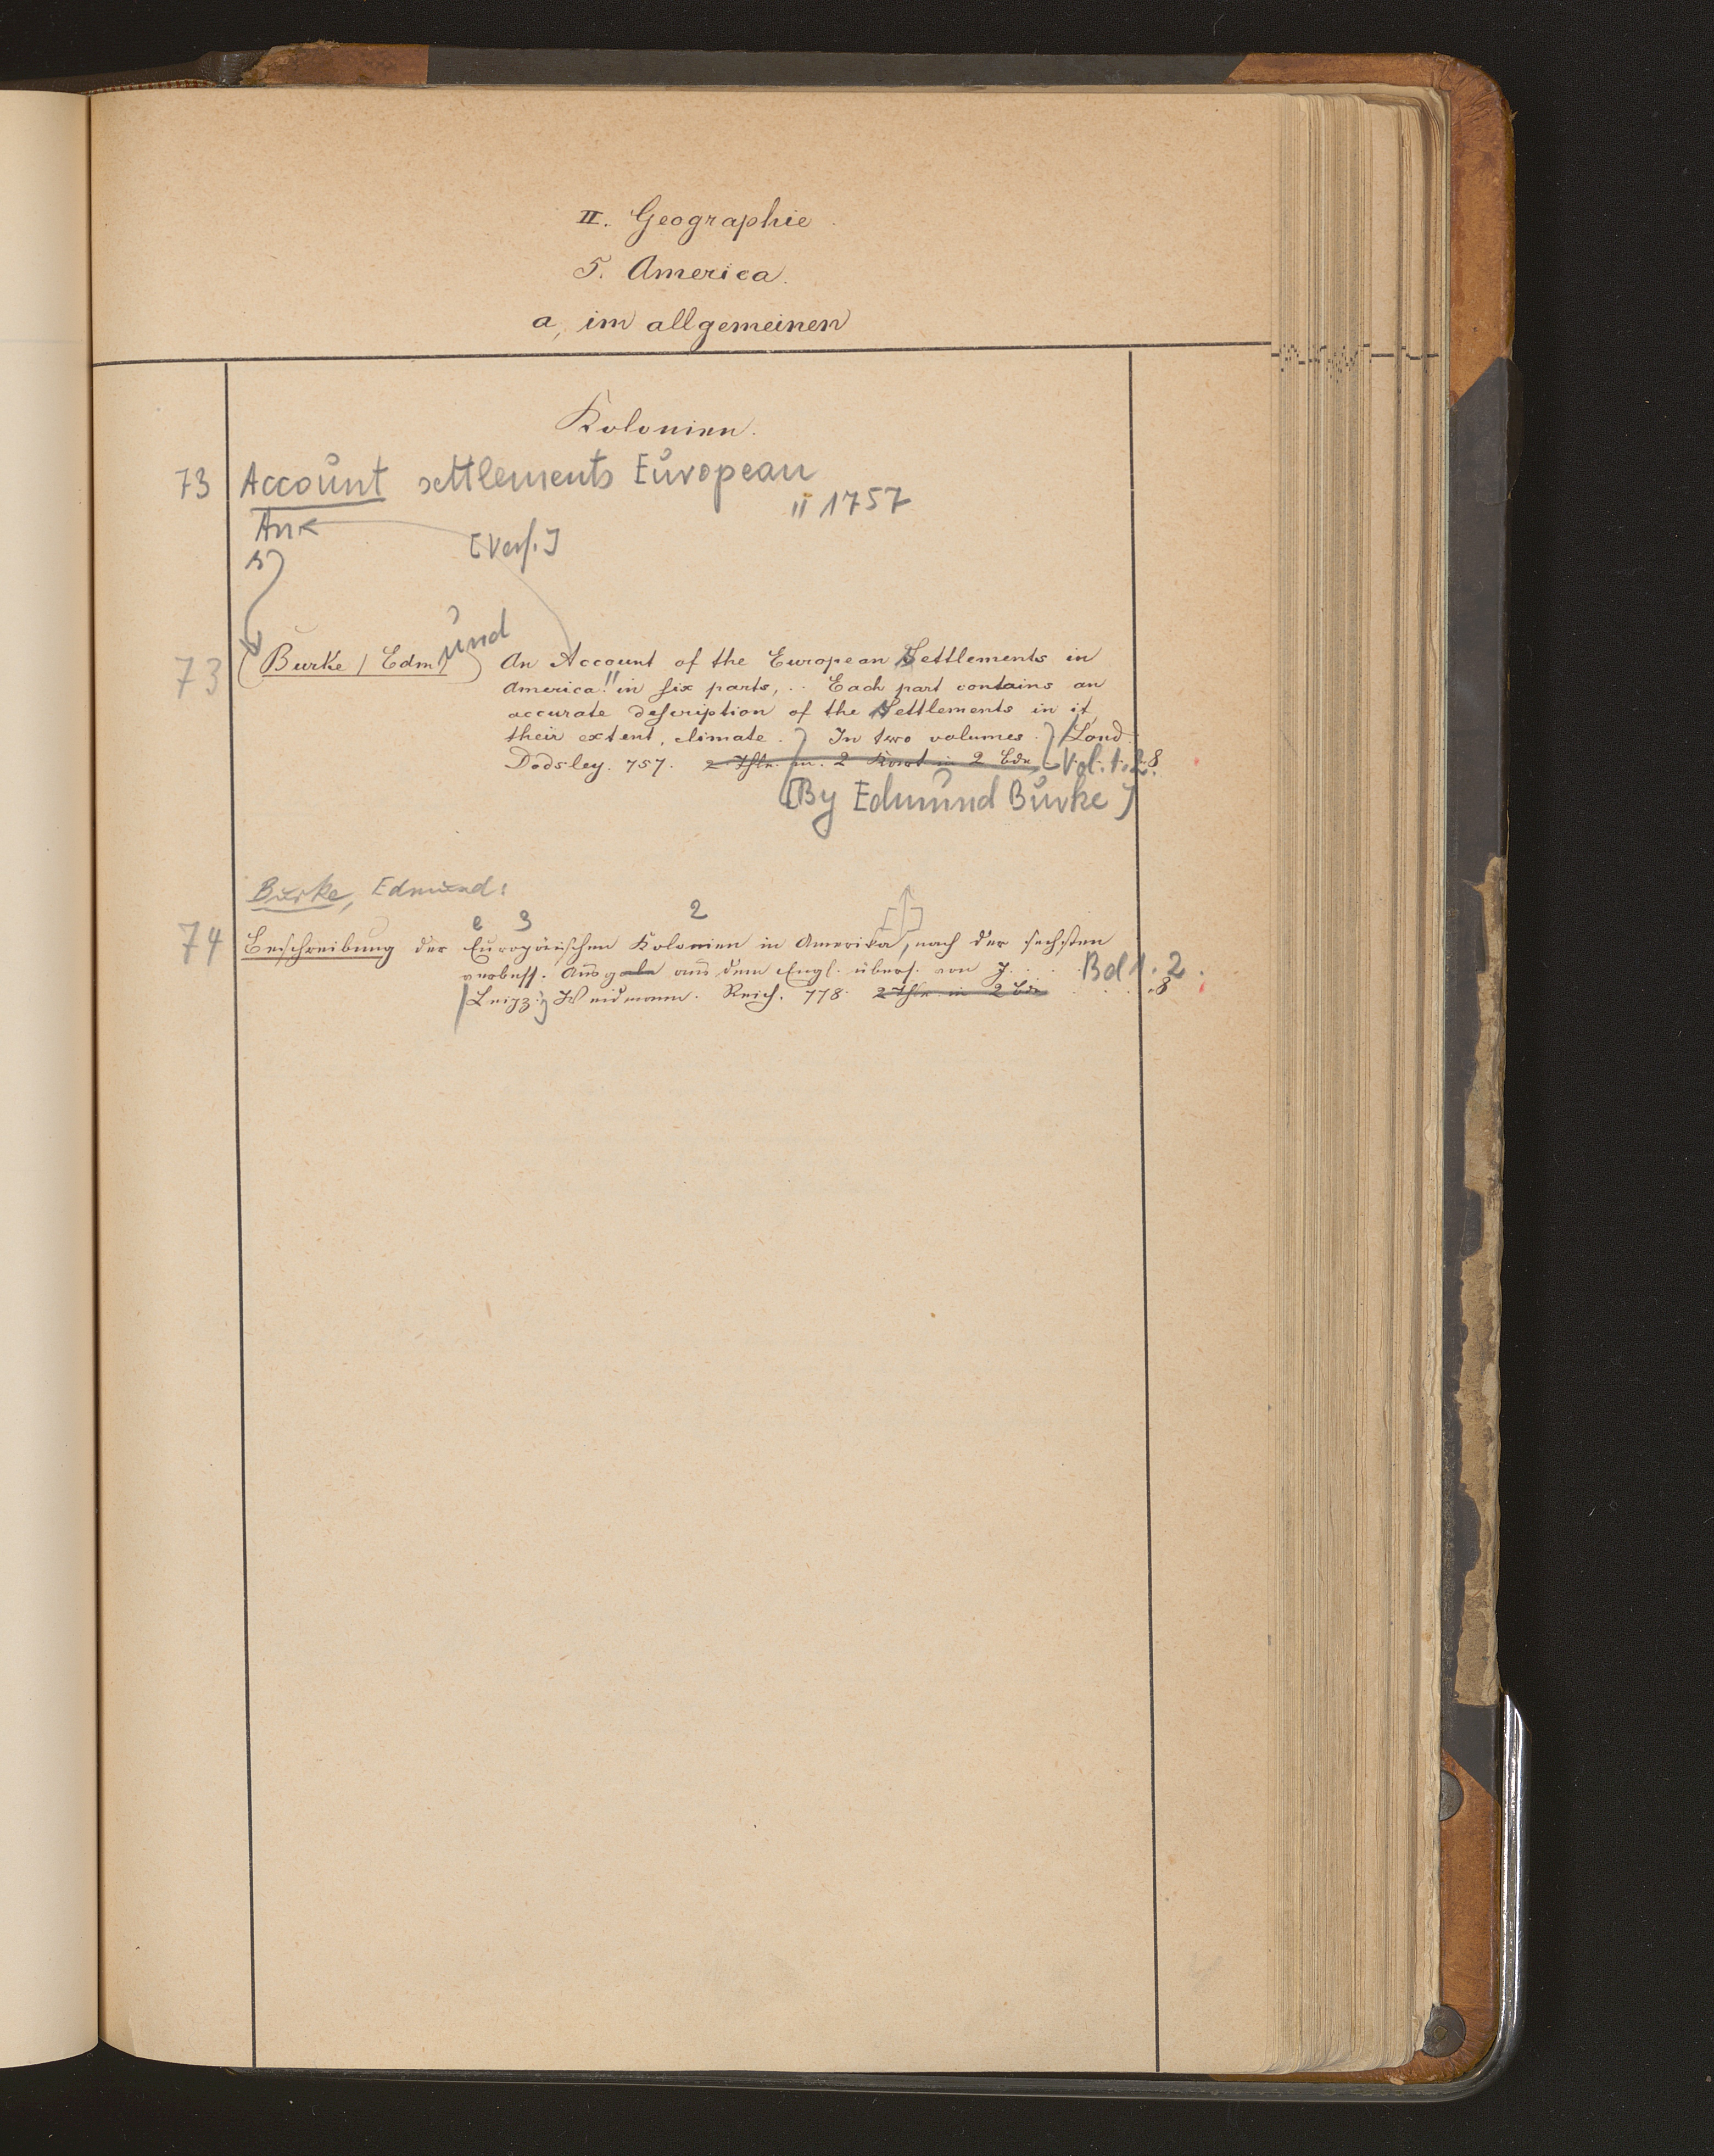 II. Geographie.
5. America.
a, im allgemeinen
Kolonien.
73 Account settlements European
An " 1757
[Verf.]
73 (Burke / Edmund) An Account of the European Settlements in
America. " in six parts, .. Each part contains an
accurate description of the Settlements in it,
their extent, climate. In two volumes. Lond.
Dodsley. 757. 2 Thle. m. 2 Kart in 2 Bde. Vol. 1. 2. 8
[By Edmund Burke]
Burke, Edmund:
e 3 2
74 Beschreibung der Europäischen Kolonien in Amerika, nach der sechsten
verbess. Ausgabe aus dem Engl. übers. von J. . . . Bd 1. 2.
Leipz. Weidmann. Reich. 778. 2 Thle. in 2 Bde . . . 8